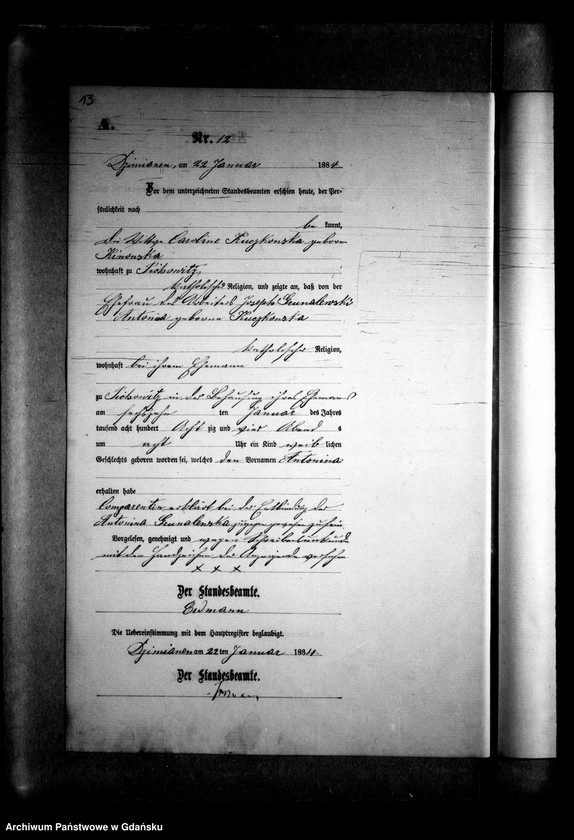 13
A.
Nr. 12
Dzimianen, am 22 Januar 1884
Vor dem unterzeichneten Standesbeamten erschien heute, der Per-
sönlichkeit nach
be kannt,
Die Wittwe Caroline Kuczkowska geborne
wohnhaft zu
katholischer Religion, und zeigte an, daß von der
Ehefrau des Arbeiters Joseph
Antonina geborne Kuczkowska
katholischer Religion,
wohnhaft bei ihrem Ehemann
zu in der Behausung ihres Ehemanns
am sechszehn ten Januar des Jahres
tausend acht hundert Acht zig und vier Abend s
um acht Uhr ein Kind weib lichen
Geschlechts geboren worden sei, welches den Vornamen Antonina
erhalten habe
Comparentin erklärt bei der Entbindung der
Antonina zugegen gewesen zu sein
Vorgelesen, genehmigt und wegen Schreibensunkunde
mit dem Handzeichen der Anzeigende versehen
x x x
Der Standesbeamte.
Erdmann
Die Uebereinstimmung mit dem Hauptregister beglaubigt.
Dzimianen am 22 ten Januar 1884.
Der Standesbeamte.
Archiwum Państwowe w Gdańsku